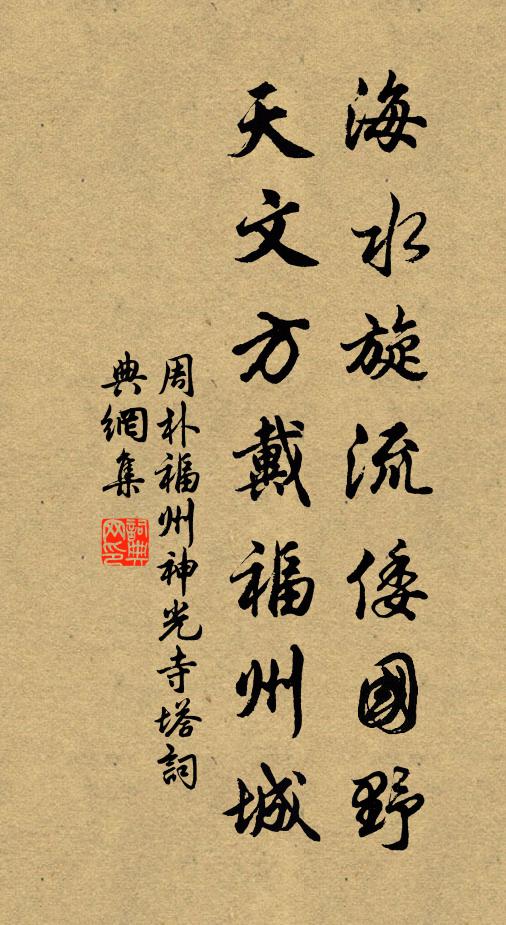 海水旋流倭國野
天文方戴福州城
周朴福州神光寺塔詞
典網集
詞典網印